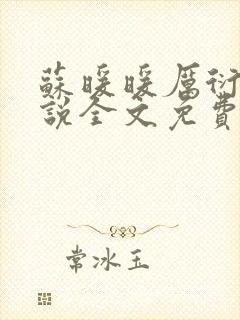 蘇暖暖厲衍
說全文免費
常冰玉